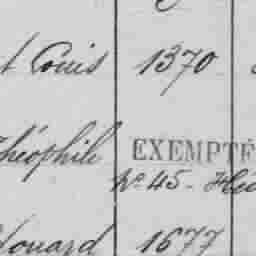 t Louis 1370
héophile EXEMPTÉ
N° 45 - Héc
douard 1677